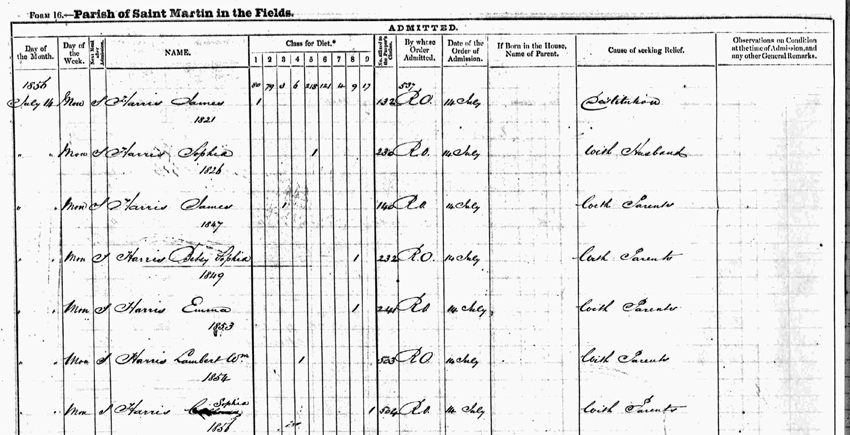 FORM 16.—Parish of Saint Martin in the Fields.
ADMITTED.
Day of the Month. Day of the Week. NAME. Class for Diet.* By whose Order Admitted. Date of the Order of Admission. If Born in the House, Name of Parent. Cause of seeking Relief. Observations on Condition at the time of Admission, and any other General Remarks.
1 2 3 4 5 6 7 8 9
1856 80 79 3 6 218 121 4 9 17 537
July 14 Mon S Harris James 1 132 R.O. 14 July Destitution
1821
" " Mon S Harris Sophia 1 230 R.O. 14 July With Husband
1826
" " Mon S Harris James 1 140 R.O. 14 July With Parents
1847
" " Mon S Harris Betsy Sophia 1 232 R.O. 14 July With Parents
1849
" " Mon S Harris Emma 1 241 R.O. 14 July With Parents
1853
" " Mon S Harris Lambert Wm 1 503 R.O. 14 July With Parents
1854
" " Mon S Harris Sophia 1 504 R.O. 14 July With Parents
1856